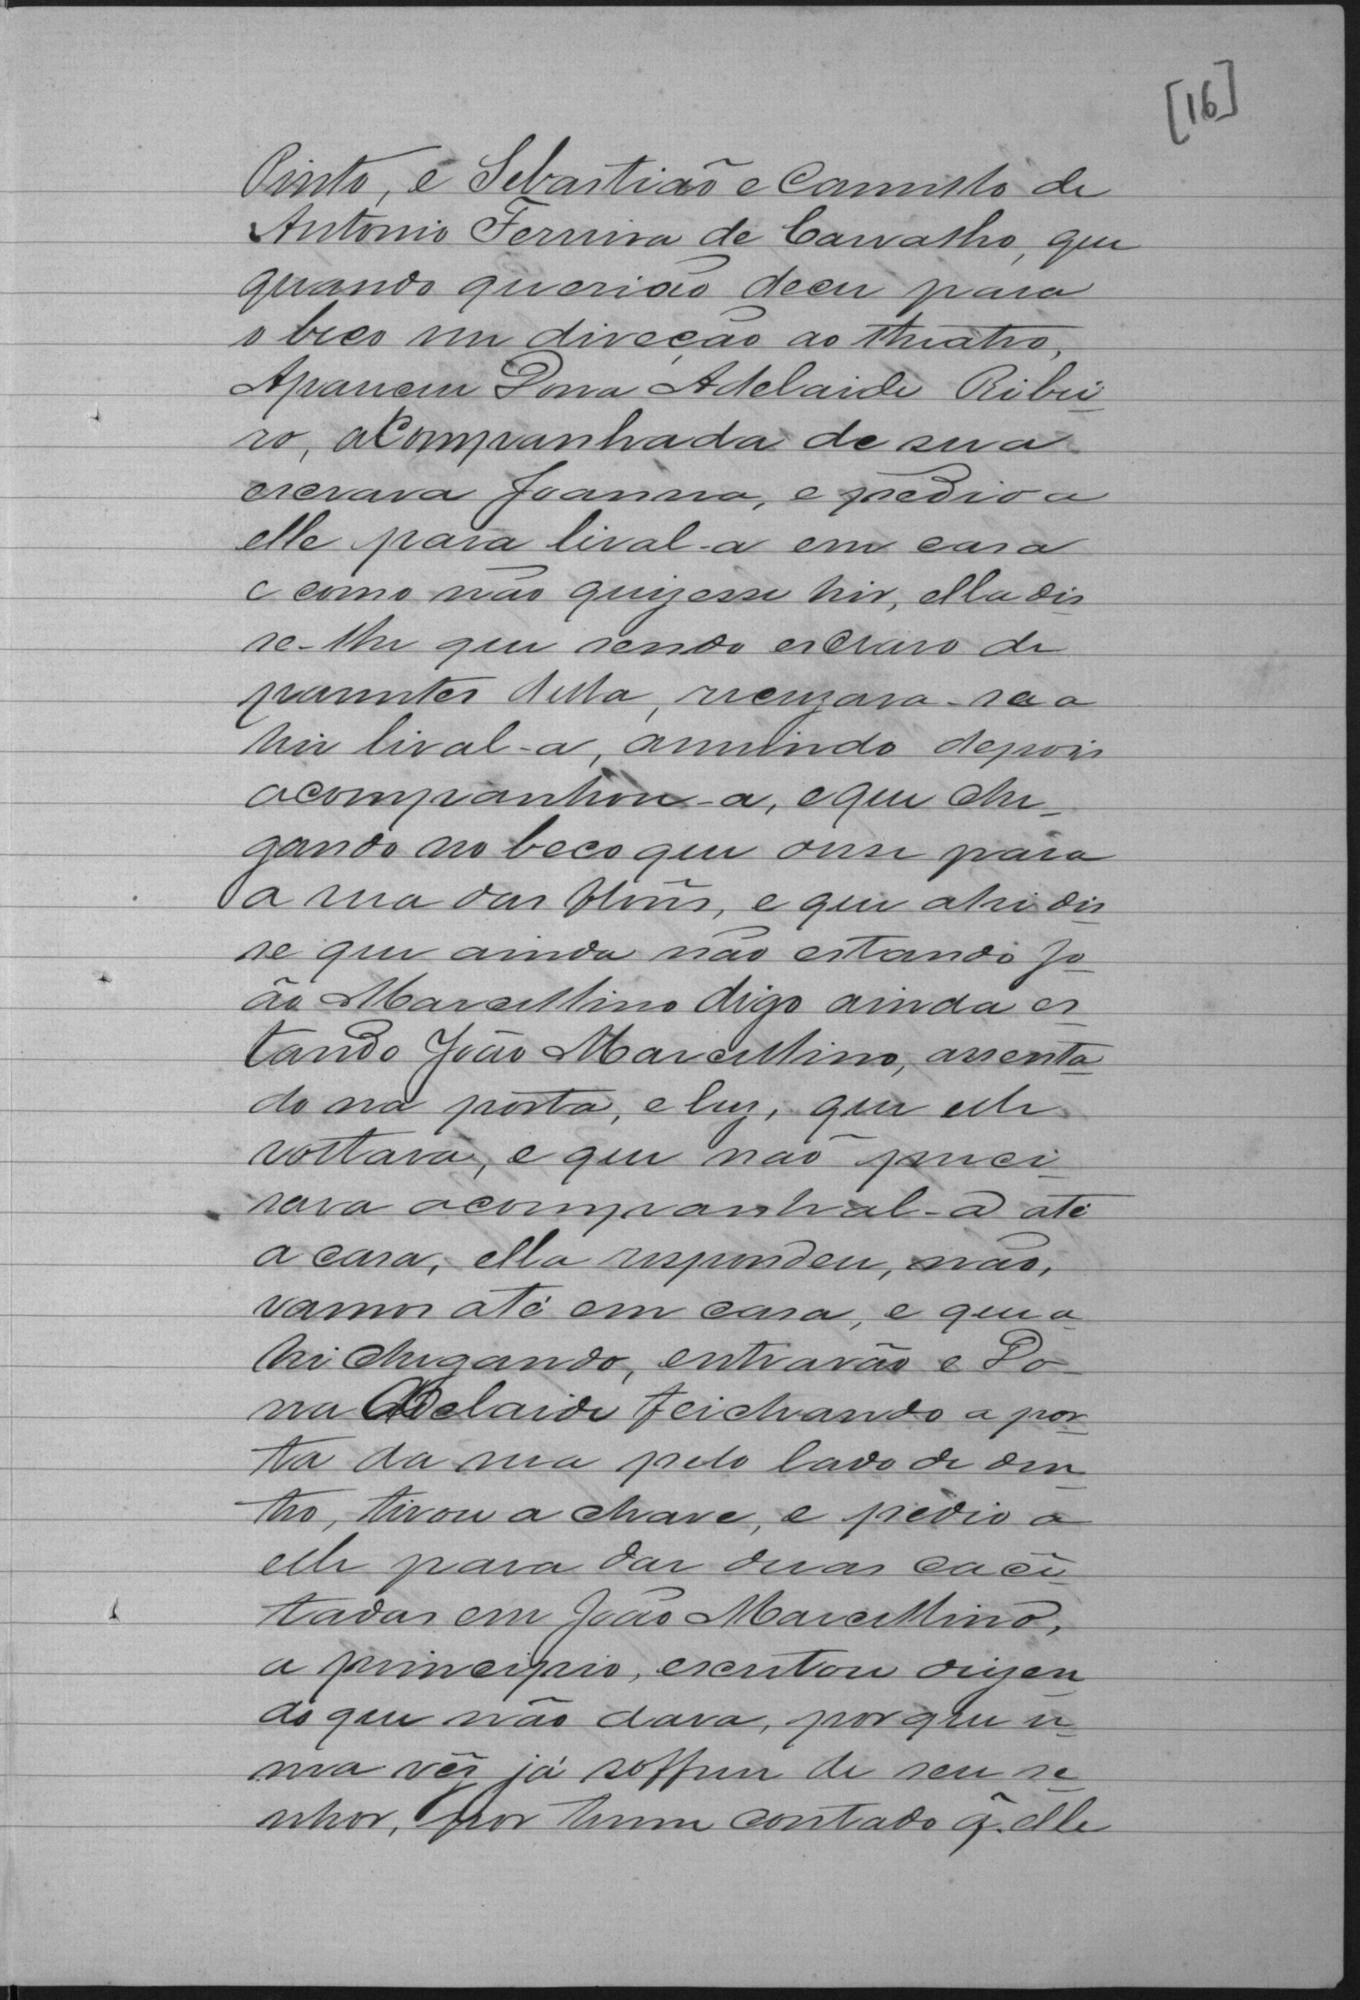 [16]
Pinto, e Sebastião e Camillo de
Antonio Ferreira de Carvalho, que
quando querião decer para
o beco em direcção ao theatro,
Apareceu Dona Adelaide Ribei-
ro, acompanhada de sua
escrava Joanna, e pedio a
elle para leval-a em casa
e como não quizesse hir, ella dis-
se-lhe que sendo escravo de
parentes della, recuzava-se a
hir leval-a, annuindo depois
acompanhou-a, e que che-
gando no beco que desse para
a rua das flôres, e que ahi dis-
se que ainda não estando Jo-
ão Marcellino digo ainda es-
tando João Marcellino, assenta-
do na porta, e luz, que elle
voltava, e que não preci-
sava acompanhal-a até
a casa, ella respondeu, não,
vamos até em casa, e que a-
hi chegando, entravão e Do-
na Adelaide feichando a por-
ta da rua pelo lado de den-
tro, tirou a chave, e pedio a
elle para dar duas cacê-
tadas em João Marcellino,
a principio, escuitou dizen-
do que não dava, porque u-
ma vêz já soffreu de seu se-
nhor, por hum contado q. elle